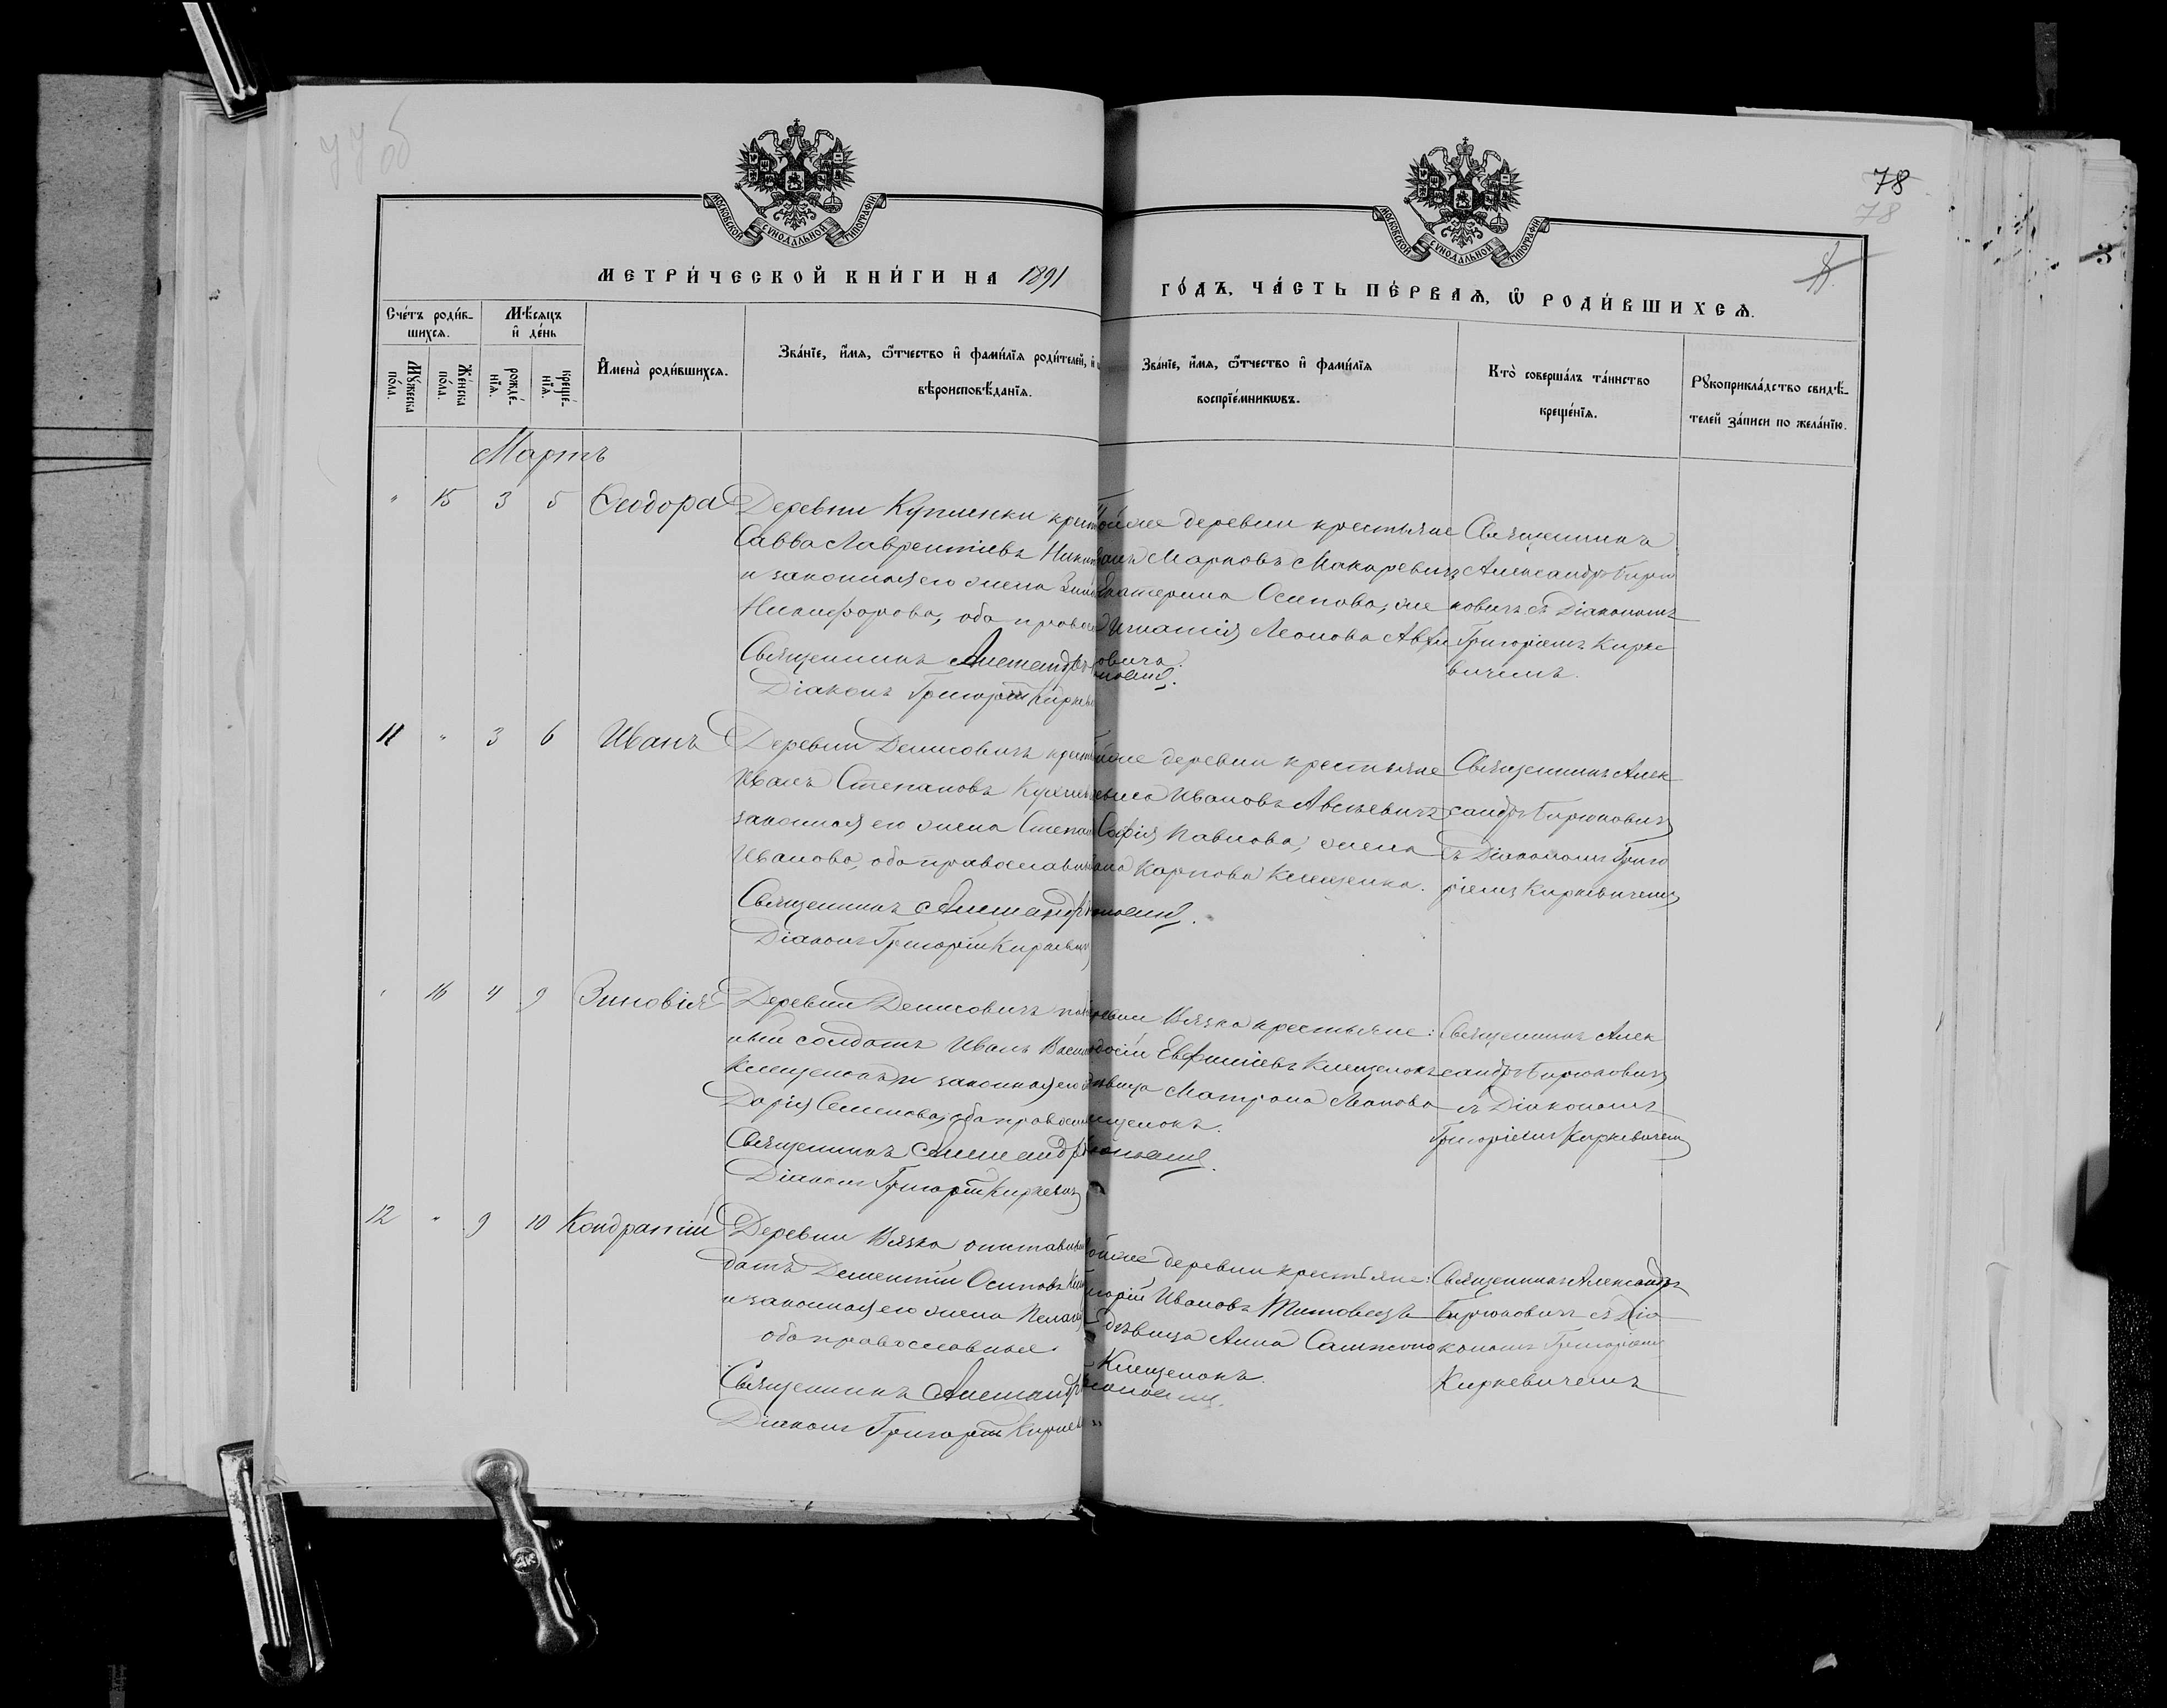 77 об
78
78
МОСКОВСКОЙ СУНОДАЛЬНОЙ ТИПОГРАФІИ
МОСКОВСКОЙ СУНОДАЛЬНОЙ ТИПОГРАФІИ
МЕТРИ́ЧЕСКОЙ КНИ́ГИ НА 1891
ГО́ДЪ, ЧА́СТЬ ПЕ́РВАѦ, Ѿ РОДИ́ВШИХСѦ.
Сче́тъ роди́в-
шихсѧ.
Мѣ́сѧцъ
и҆ де́нь
Мꙋ́жеска
по́ла.
Же́нска
по́ла.
рожде́-
нїѧ.
креще́-
нїѧ.
И҆мена̀ роди́вшихсѧ.
Зва́нїе, и҆́мѧ, ѻ҆́тчество и҆ фами́лїѧ роди́телей, и҆
вѣроисповѣ́данїѧ.
Зва́нїе, и҆́мѧ, ѻ҆́тчество и҆ фами́лїѧ
воспрїе́мникѡвъ.
Кто̀ соверша́лъ та́инство
креще́нїѧ.
Рꙋкоприкла́дство свидѣ́-
телей за́писи по жела́нїю.
Мартъ
" 15 3 5 Ѳеодора
Деревни Купленки крест
Савва Лаврентіевъ
и законная его жена
Никифорова, оба правосл
Священникъ Александръ
Діаконъ Григорій Киркев
Тойже деревни крестьяне
Иванъ Марковъ Макаревичъ
Екатерина Осипова, же
Игнатія Леонова
овича.
Священникъ
Александръ Бирю
ковичъ съ Діакономъ
Григоріемъ Кирке
вичемъ.
11 " 3 6 Иванъ
Деревни Денисовичъ крест
Иванъ Степановъ
законная его жена
Иванова, оба православн
Священникъ Александръ
Діаконъ Григорій Киркевич
Тойже деревни крестьяне
Ивановъ Авсеевичъ
Софія Павлова, жена
Карпова Клещенка.
Священникъ Алек
сандръ Бирюковичъ
съ Діакономъ Григо
ріемъ Киркевичемъ
" 16 4 9 Зиновія
Деревни Денисовичъ
ный солдатъ Иванъ
Клещенокъ и законная его
Дарія Семенова, оба правосл
Священникъ Александръ
Діаконъ Григорій Киркевичъ
Деревни Вязка крестьяне:
Евфиміевъ Клещенокъ
дѣвица Матрона Леонова
Клещенокъ.
Священникъ Алек
сандръ Бирюковичъ
съ Діакономъ
Григоріемъ Киркевичемъ
12 " 9 10 Кондратій
Деревни Вязка отставный
датъ Дементій Осиповъ
и законная его жена Пелагія
оба православные.
Священникъ Александръ
Діаконъ Григорій Киркев
Тойже деревни крестьяне:
Григорій Ивановъ Титовецъ
дѣвица Анна Сампсоно
Клещенокъ.
Священникъ Александръ
Бирюковичъ съ Діа
кономъ Григоріемъ
Киркевичемъ